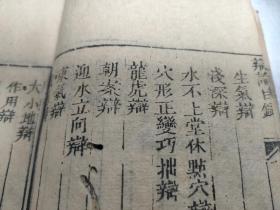 辯論目錄
生氣辯
淺深辯
水不上堂休點穴辯
穴形正變巧拙辯
龍虎辯
朝案辯
迎水立向辯
氣辯
大小地辯
作用辯